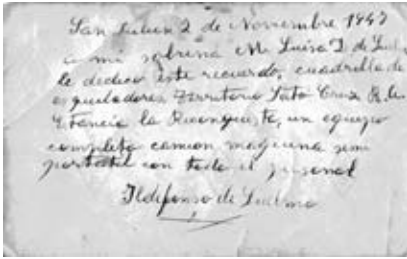 San Julian 2 de Noviembre 1947
a mi sobrina M. Luisa D. de
le dedico este recuerdo, cuadrilla de
esquiladores Territorio Santa Cruz R.A.
Estancia la Reconquista, un equipo
completo camion maquina semi
portatil con todo el personal
Ildefonso de